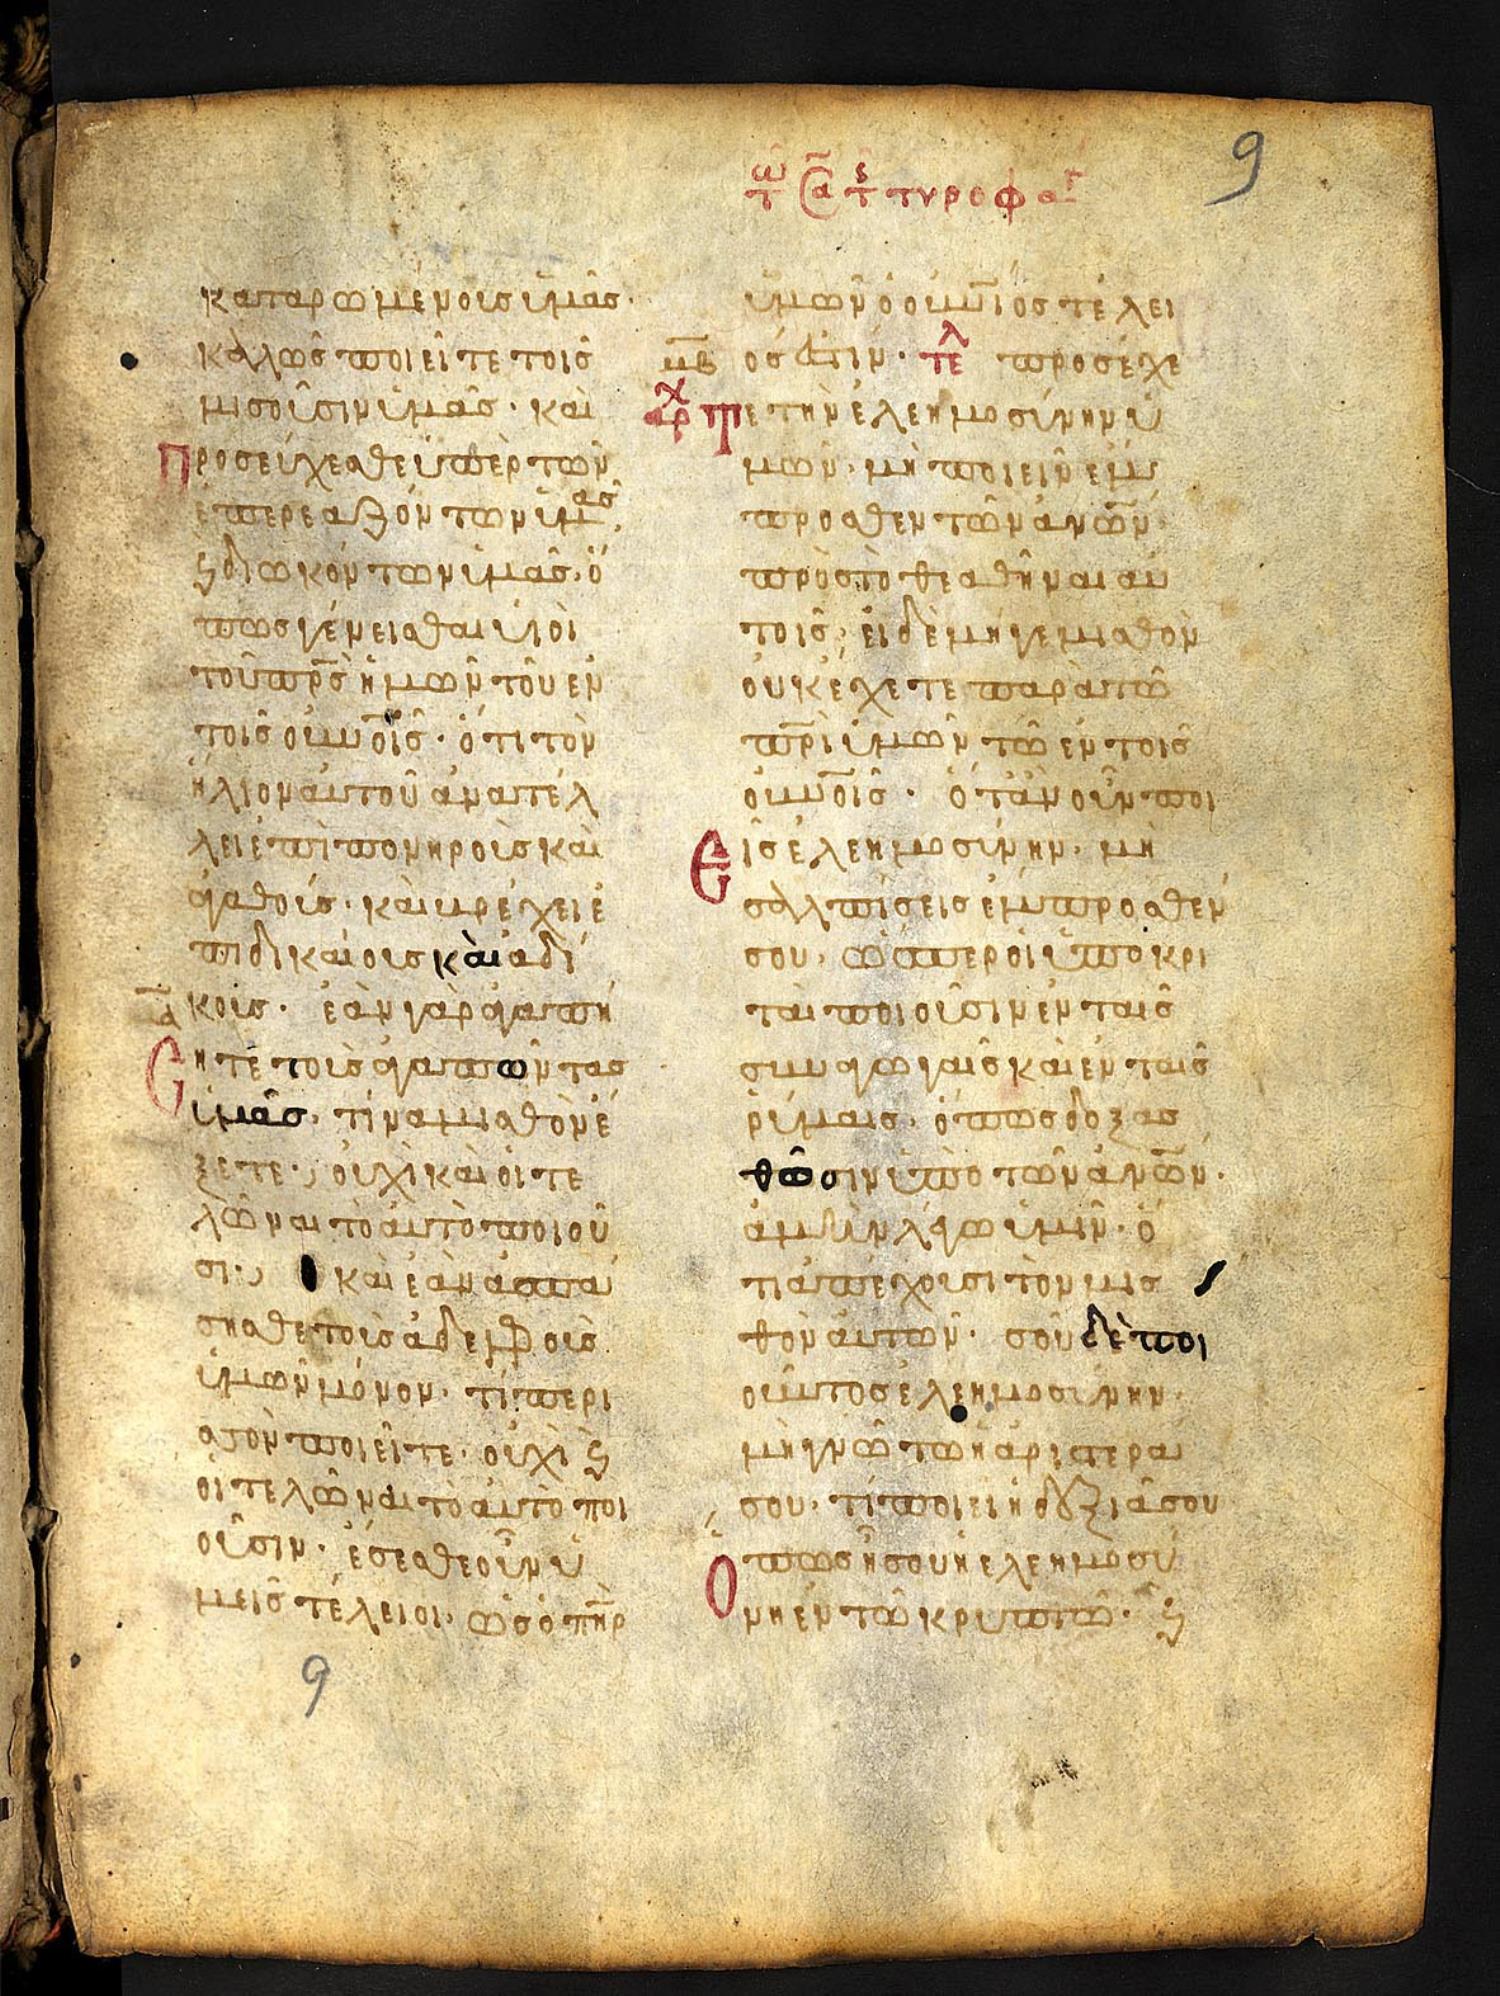 9
τω Σα τς τυροφαγ
καταρωμένοις ὑμᾶς·
καλῶς ποιεῖτε τοῖς
μισοῦσιν ὑμᾶς· καὶ
προσεύχεσθε ὑπὲρ τῶν
ἐπερεαζόντων ὑμας,
ϛ διωκόντων ὑμᾶς, ὅ
πως γένεισθαι υἱοὶ
τοῦ πρ̅ς ἡμῶν τοῦ ἐν
τοῖς οὐνο̅ις· ὅτι τὸν
ἥλιον αὐτοῦ ἀνατέλ
λει ἐπὶ πονηροὺς καὶ
ἀγαθούς· καὶ βρέχει ἐ
πι δικαίους καὶ αδί
κους· ἐὰν γὰρ ἀγαπή
ητε τοὺς ἀγαπῶντας
ὑμᾶς, τίνα μισθὸν ἕ
ξετε·; οὐχὶ καὶ οἱ τε
λῶναι τὸ αὐτὸ ποιοῦ
σι·; καὶ ἐὰν ἀσπά
σησθε τοὺς ἀδελφοὺς
ὑμῶν μόνον· τί περι
σσὸν ποιεῖτε· οὐχὶ ϛ
οἱ τελῶναι τὸ αὐτὸ ποι
οῦσιν· ἔσεσθε οὖν ὑ
μεῖς τέλειοι· ὡς ὁ πη̅ρ
ὑμῶν ὁ οὐνι̅ος τέλει
ός ἐστιν· τελ προσέχε
αρχ τε τὴν ἐλεημοσύνην ὑ
μῶν· μὴ ποιεῖν ἐμ
προσθεν τῶν ἀνω̅ν·
πρὸς τὸ θεαθῆναι αυ
τοῖς, εἰ δὲ μήγε μισθὸν
οὐκ ἔχετε παρὰ τῶ
πρ̅ὶ ὑμῶν τῶ ἐν τοῖς
οὐνο̅ις· ὅταν οὖν ποι
εῖς ἐλεημοσύνην· μὴ
σαλπίσεις ἔμπροσθέν
σου, ὥσπερ οἱ ὑποκρι
ταὶ ποιοῦσιν ἐν ταῖς
συναγωγαῖς καὶ ἐν ταῖς
ρύμαις· ὅπως δοξασ
θῶσιν ὑπὸ τῶν ἀνω̅ν·
ἀμὴν λέγω ὑμῖν· ὅ
τι ἀπέχουσι τὸν μισ
θὸν αὐτῶν· σοῦ δὲ ποι
οῦντος ἐλεημοσύνην·
μὴ γνῶ τω ἡ ἀριστερα
σου, τί ποιεῖ ἡ δεξιᾶ σου
ὅπως ἦ σου ἡ ελεημοσύ
νη ἐν τῶ κρυπτῶ· ϛ
9